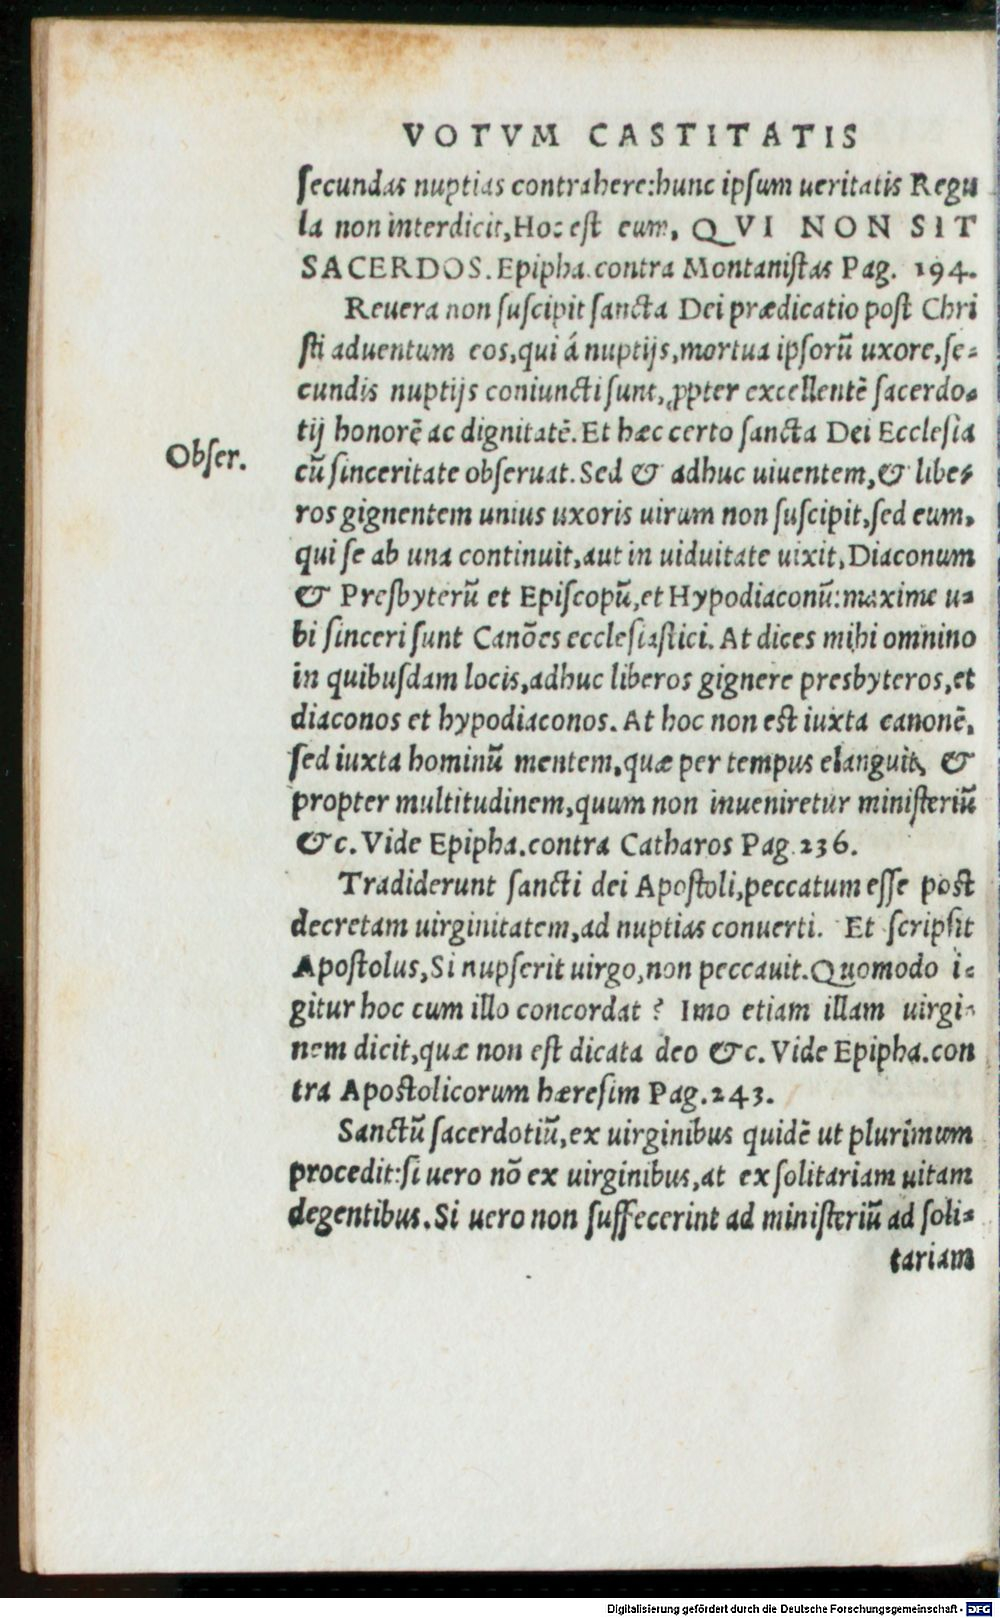 VOTVM CASTITATIS
ſecundas nuptias contrahere:hunc ipſum ueritatis Regu
la non interdicit,Hoc eſt eum, QVI NON SIT
SACERDOS.Epipha.contra Montaniſtas Pag. 194.
Reuera non ſuſcipit ſancta Dei prædicatio poſt Chri
ſti aduentum eos,qui á nuptijs,mortua ipſorũ uxore,ſe-
cundis nuptijs coniuncti ſunt, ꝓpter excellentẽ ſacerdo-
tij honorẽ ac dignitatẽ. Et hæc certo ſancta Dei Eccleſia
Obſer.
cũ ſinceritate obſeruat. Sed & adhuc uiuentem,& libe-
ros gignentem unius uxoris uirum non ſuſcipit,ſed eum,
qui ſe ab una continuit,aut in uiduitate uixit, Diaconum
& Preſbyterũ et Epiſcopũ,et Hypodiaconũ:maxime u-
bi ſinceri ſunt Canões eccleſiaſtici. At dices mihi omnino
in quibuſdam locis,adhuc liberos gignere presbyteros,et
diaconos et hypodiaconos. At hoc non eſt iuxta canonẽ,
ſed iuxta hominũ mentem,quæ per tempus elanguit, &
propter multitudinem,quum non inueniretur miniſteriũ
&c. Vide Epipha.contra Catharos Pag.236.
Tradiderunt ſancti dei Apoſtoli,peccatum eſſe poſt
decretam uirginitatem,ad nuptias conuerti. Et ſcripſit
Apoſtolus,Si nupſerit uirgo,non peccauit.Quomodo i-
gitur hoc cum illo concordat? Imo etiam illam uirgi-
nem dicit,quæ non eſt dicata deo &c. Vide Epipha.con
tra Apoſtolicorum hæreſim Pag.243.
Sanctũ ſacerdotiũ,ex uirginibus quidẽ ut plurimum
procedit:ſi uero nõ ex uirginibus,at ex ſolitariam uitam
degentibus. Si uero non ſuffecerint ad miniſteriũ ad ſoli-
tariam
Digitalisierung gefördert durch die Deutsche Forschungsgemeinschaft - DFG